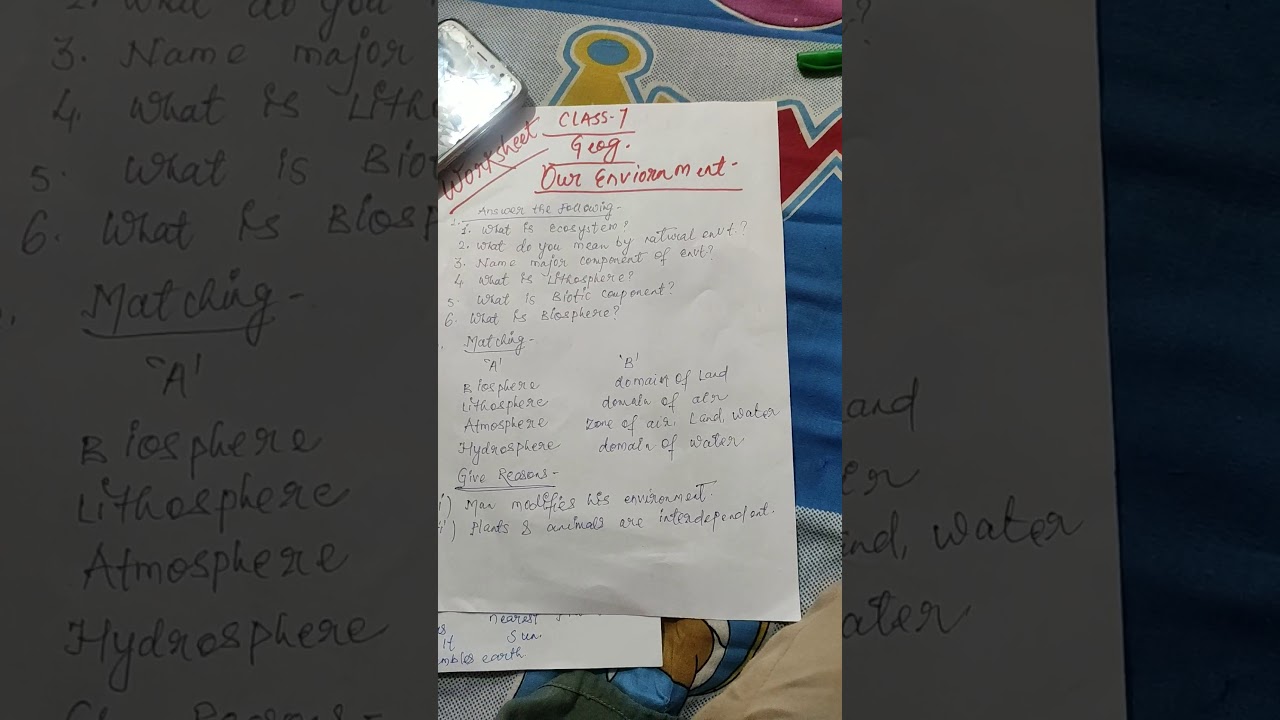 Worksheet
CLASS-7
Geog.
Our Enviornment-
1. Answer the following-
1. What is ecosystem?
2. What do you mean by natural envt.?
3. Name major component of envt?
4. What is Lithosphere?
5. What is Biotic component?
6. What is Biosphere?
Matching-
'A' 'B'
Biosphere domain of Land
Lithosphere domain of air
Atmosphere Zone of air, Land, water
Hydrosphere domain of water
Give Reasons-
i) Man modifies his environment.
ii) Plants & animals are interdependent.
nearest
it Sun.
earth.